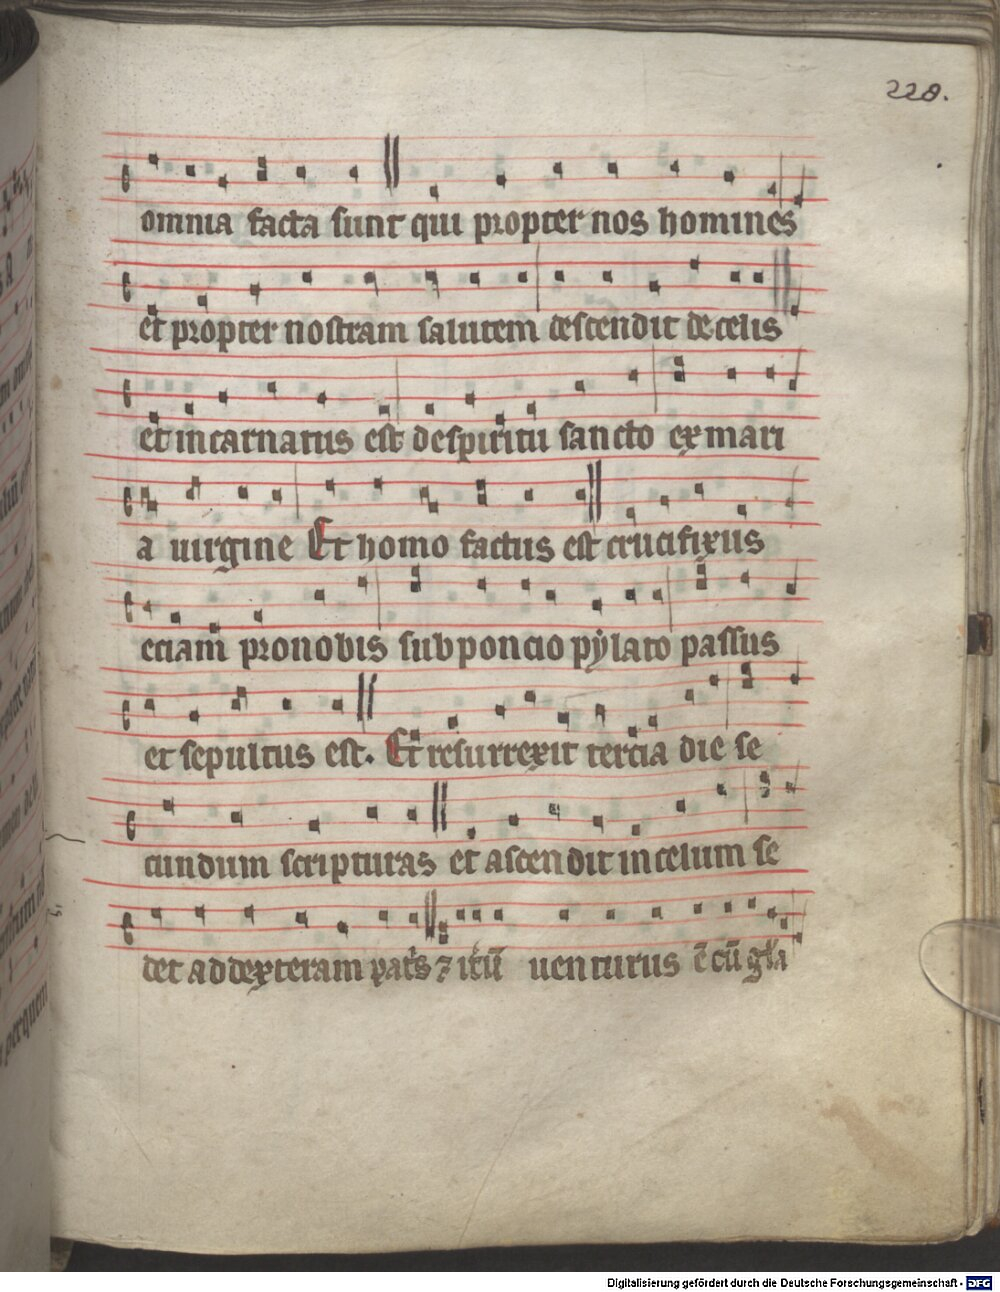 228.
omnia facta sunt qui propter nos homines
et propter nostram salutem descendit de celis
et incarnatus est de spiritu sancto ex mari
a uirgine Et homo factus est crucifixus
eciam pro nobis sub poncio pÿlato passus
et sepultus est. Et resurrexit tercia die se
cundum scripturas et ascendit in celum se
det ad dexteram pat's ⁊ it'ū uenturus ē cū gl'a
Digitalisierung gefördert durch die Deutsche Forschungsgemeinschaft - DFG